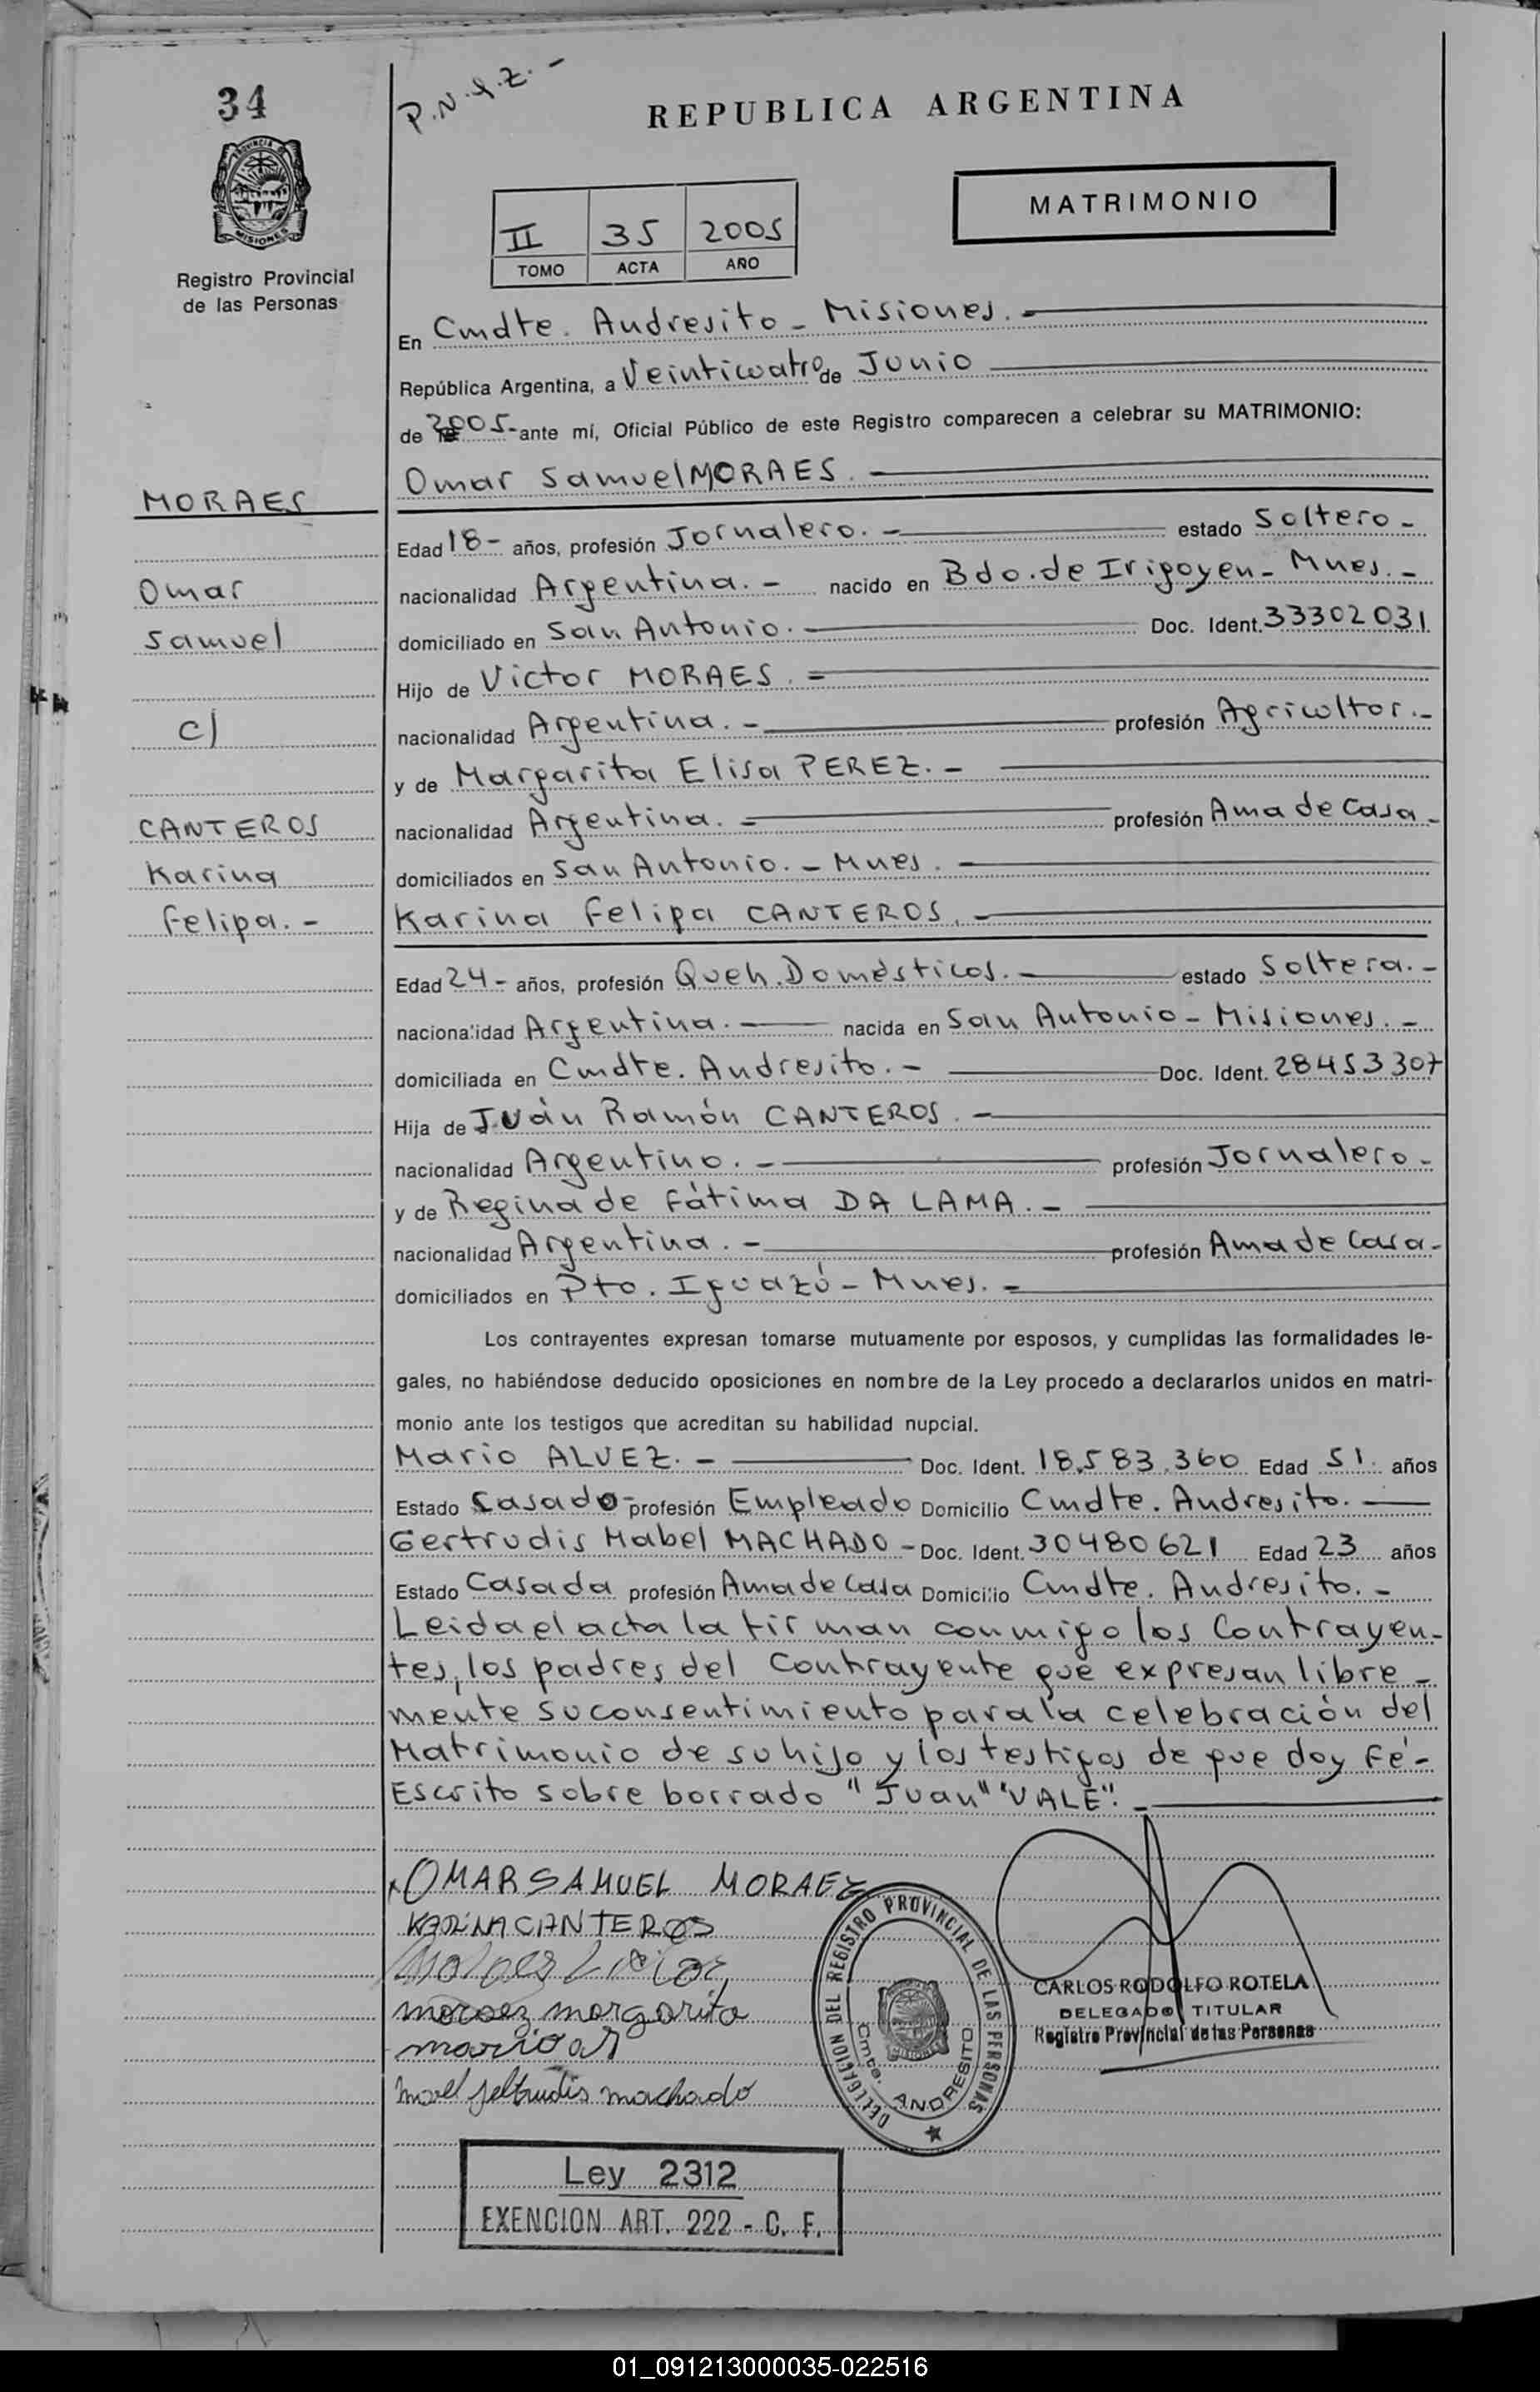 34
P.N.Q.Z. -
REPUBLICA ARGENTINA
PROVINCIA DE
MISIONES
MATRIMONIO
II 35 2005
TOMO ACTA AÑO
Registro Provincial
de las Personas
En Cmdte. Andresito - Misiones. -
República Argentina, a Veinticuatro de Junio
de 2005- ante mí, Oficial Público de este Registro comparecen a celebrar su MATRIMONIO:
Omar Samuel MORAES. -
MORAES
Edad 18- años, profesión Jornalero. - estado Soltero -
Omar
nacionalidad Argentina. - nacido en Bdo. de Irigoyen - Mnes. -
Samuel
domiciliado en San Antonio. - Doc. Ident. 33302031
Hijo de Victor MORAES. -
c/
nacionalidad Argentina. - profesión Agricultor. -
y de Margarita Elisa PEREZ. -
CANTEROS
nacionalidad Argentina. - profesión Ama de Casa -
Karina
domiciliados en San Antonio. - Mnes. -
Felipa. -
Karina Felipa CANTEROS. -
Edad 24 - años, profesión Queh. Domésticos. - estado Soltera. -
nacionalidad Argentina. - nacida en San Antonio - Misiones. -
domiciliada en Cmdte. Andresito. - Doc. Ident. 28453307
Hija de Juán Ramón CANTEROS. -
nacionalidad Argentino. - profesión Jornalero -
y de Regina de Fátima DA LAMA. -
nacionalidad Argentina. - profesión Ama de Casa -
domiciliados en Pto. Iguazú - Mnes. -
Los contrayentes expresan tomarse mutuamente por esposos, y cumplidas las formalidades le-
gales, no habiéndose deducido oposiciones en nombre de la Ley procedo a declararlos unidos en matri-
monio ante los testigos que acreditan su habilidad nupcial.
Mario ALVEZ. - Doc. Ident. 18.583.360 Edad 51 años
Estado Casado - profesión Empleado Domicilio Cmdte. Andresito. -
Gertrudis Mabel MACHADO - Doc. Ident. 30480621 Edad 23 años
Estado Casada profesión Ama de Casa Domicilio Cmdte. Andresito. -
Leida el acta la firman conmigo los Contrayen-
tes, los padres del Contrayente que expresan libre -
mente su consentimiento para la celebración del
Matrimonio de su hijo y los testigos de que doy Fé -
Escrito sobre borrado "Juan" "VALE". -
OMAR SAMUEL MORAEZ
KARINA CANTEROS
moraez margarita
mario
machado
DELEGACION DEL REGISTRO PROVINCIAL DE LAS PERSONAS
Cmte. ANDRESITO
CARLOS RODOLFO ROTELA
DELEGADO TITULAR
Registro Provincial de las Personas
Ley 2312
EXENCION ART. 222 - C. F.
01_091213000035-022516